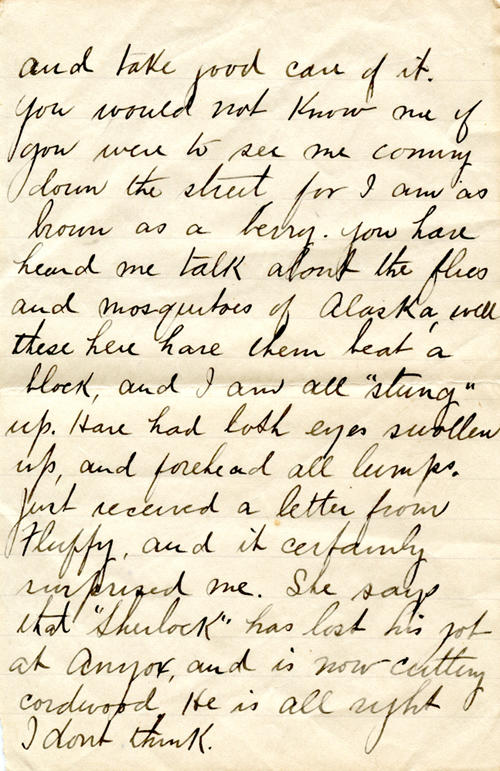 and take good care of it.
You would not know me if
you were to see me coming
down the street for I am as
brown as a berry. You have
heard me talk about the flies
and mosquitoes of Alaska, well
these here have them beat a
block, and I am all "stung"
up. Have had both eyes swollen
up, and forehead all lumps.
Just received a letter from
Fluffy, and it certainly
surprised me. She says
that "Sherlock" has lost his jot
at Anyox, and is now cutting
cordwood. He is all right
I dont think.